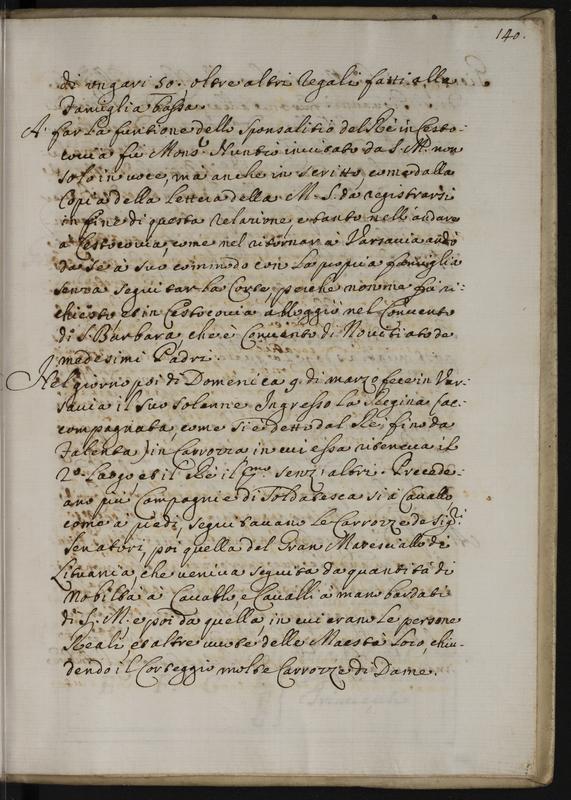 140.
di ungari 50. oltre altri regali fatti alla
famiglia bassa.
A' far la funtione dello Sponsalitio del Rè in Cesto-
covia fu Mons.r Nuntio invitato da S. M.tà non
solo in voce, ma anche in scritto, come dalla
Copia della lettera della M. S. da registrarsi
in fine di questa relatione, e tanto nell'andare
a Cestocovia, come nel ritornar à Varsavia andò
da se à suo commodo con la propria famiglia
senza seguitar la Corte, perche non ne fù ri-
chiesto et in Cestocovia alloggiò nel Convento
di S. Barbara, che è Convento di Novitiato de
medesimi Padri.
Nel giorno poi di Domenica 9. di marzo fece in Var-
savia il suo solenne Ingresso la Regina (ac-
compagnata, come si è detto dal Rè, fino da
Falenta) in Carrozza, in cui essa riteneva il
2.o luogo et il Rè il p.mo senz'altri. Precede-
ano più Compagnie di Soldatesca sì à Cavallo
come à piedi, seguitavano le Carrozze de Sig.ri
Senatori, poi quella del Gran Maresciallo di
Lituania, che veniva seguita da quantità di
Nobiltà à Cavallo, e Cavalli à mano bardati
di S. M. e poi da quella, in cui erano le persone
Reali, et altre vuote delle Maestà loro, chiu-
dendo il Corteggio molte Carrozze di Dame.